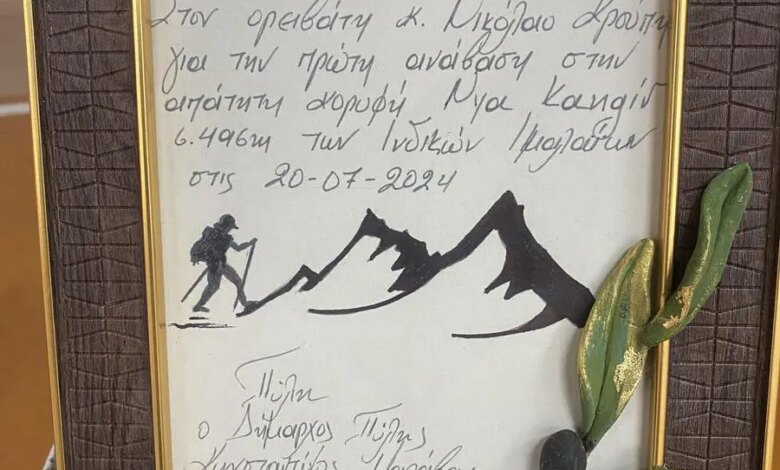 Στον ορειβάτη κ. Νικόλαο Κρούπη
για την πρώτη ανάβαση στην
απάτητη κορυφή Nya Kangri
6.496m των Ινδικών Ιμαλαΐων
στις 20-07-2024
Πύλη
ο Δήμαρχος Πύλης
Κωνσταντίνος